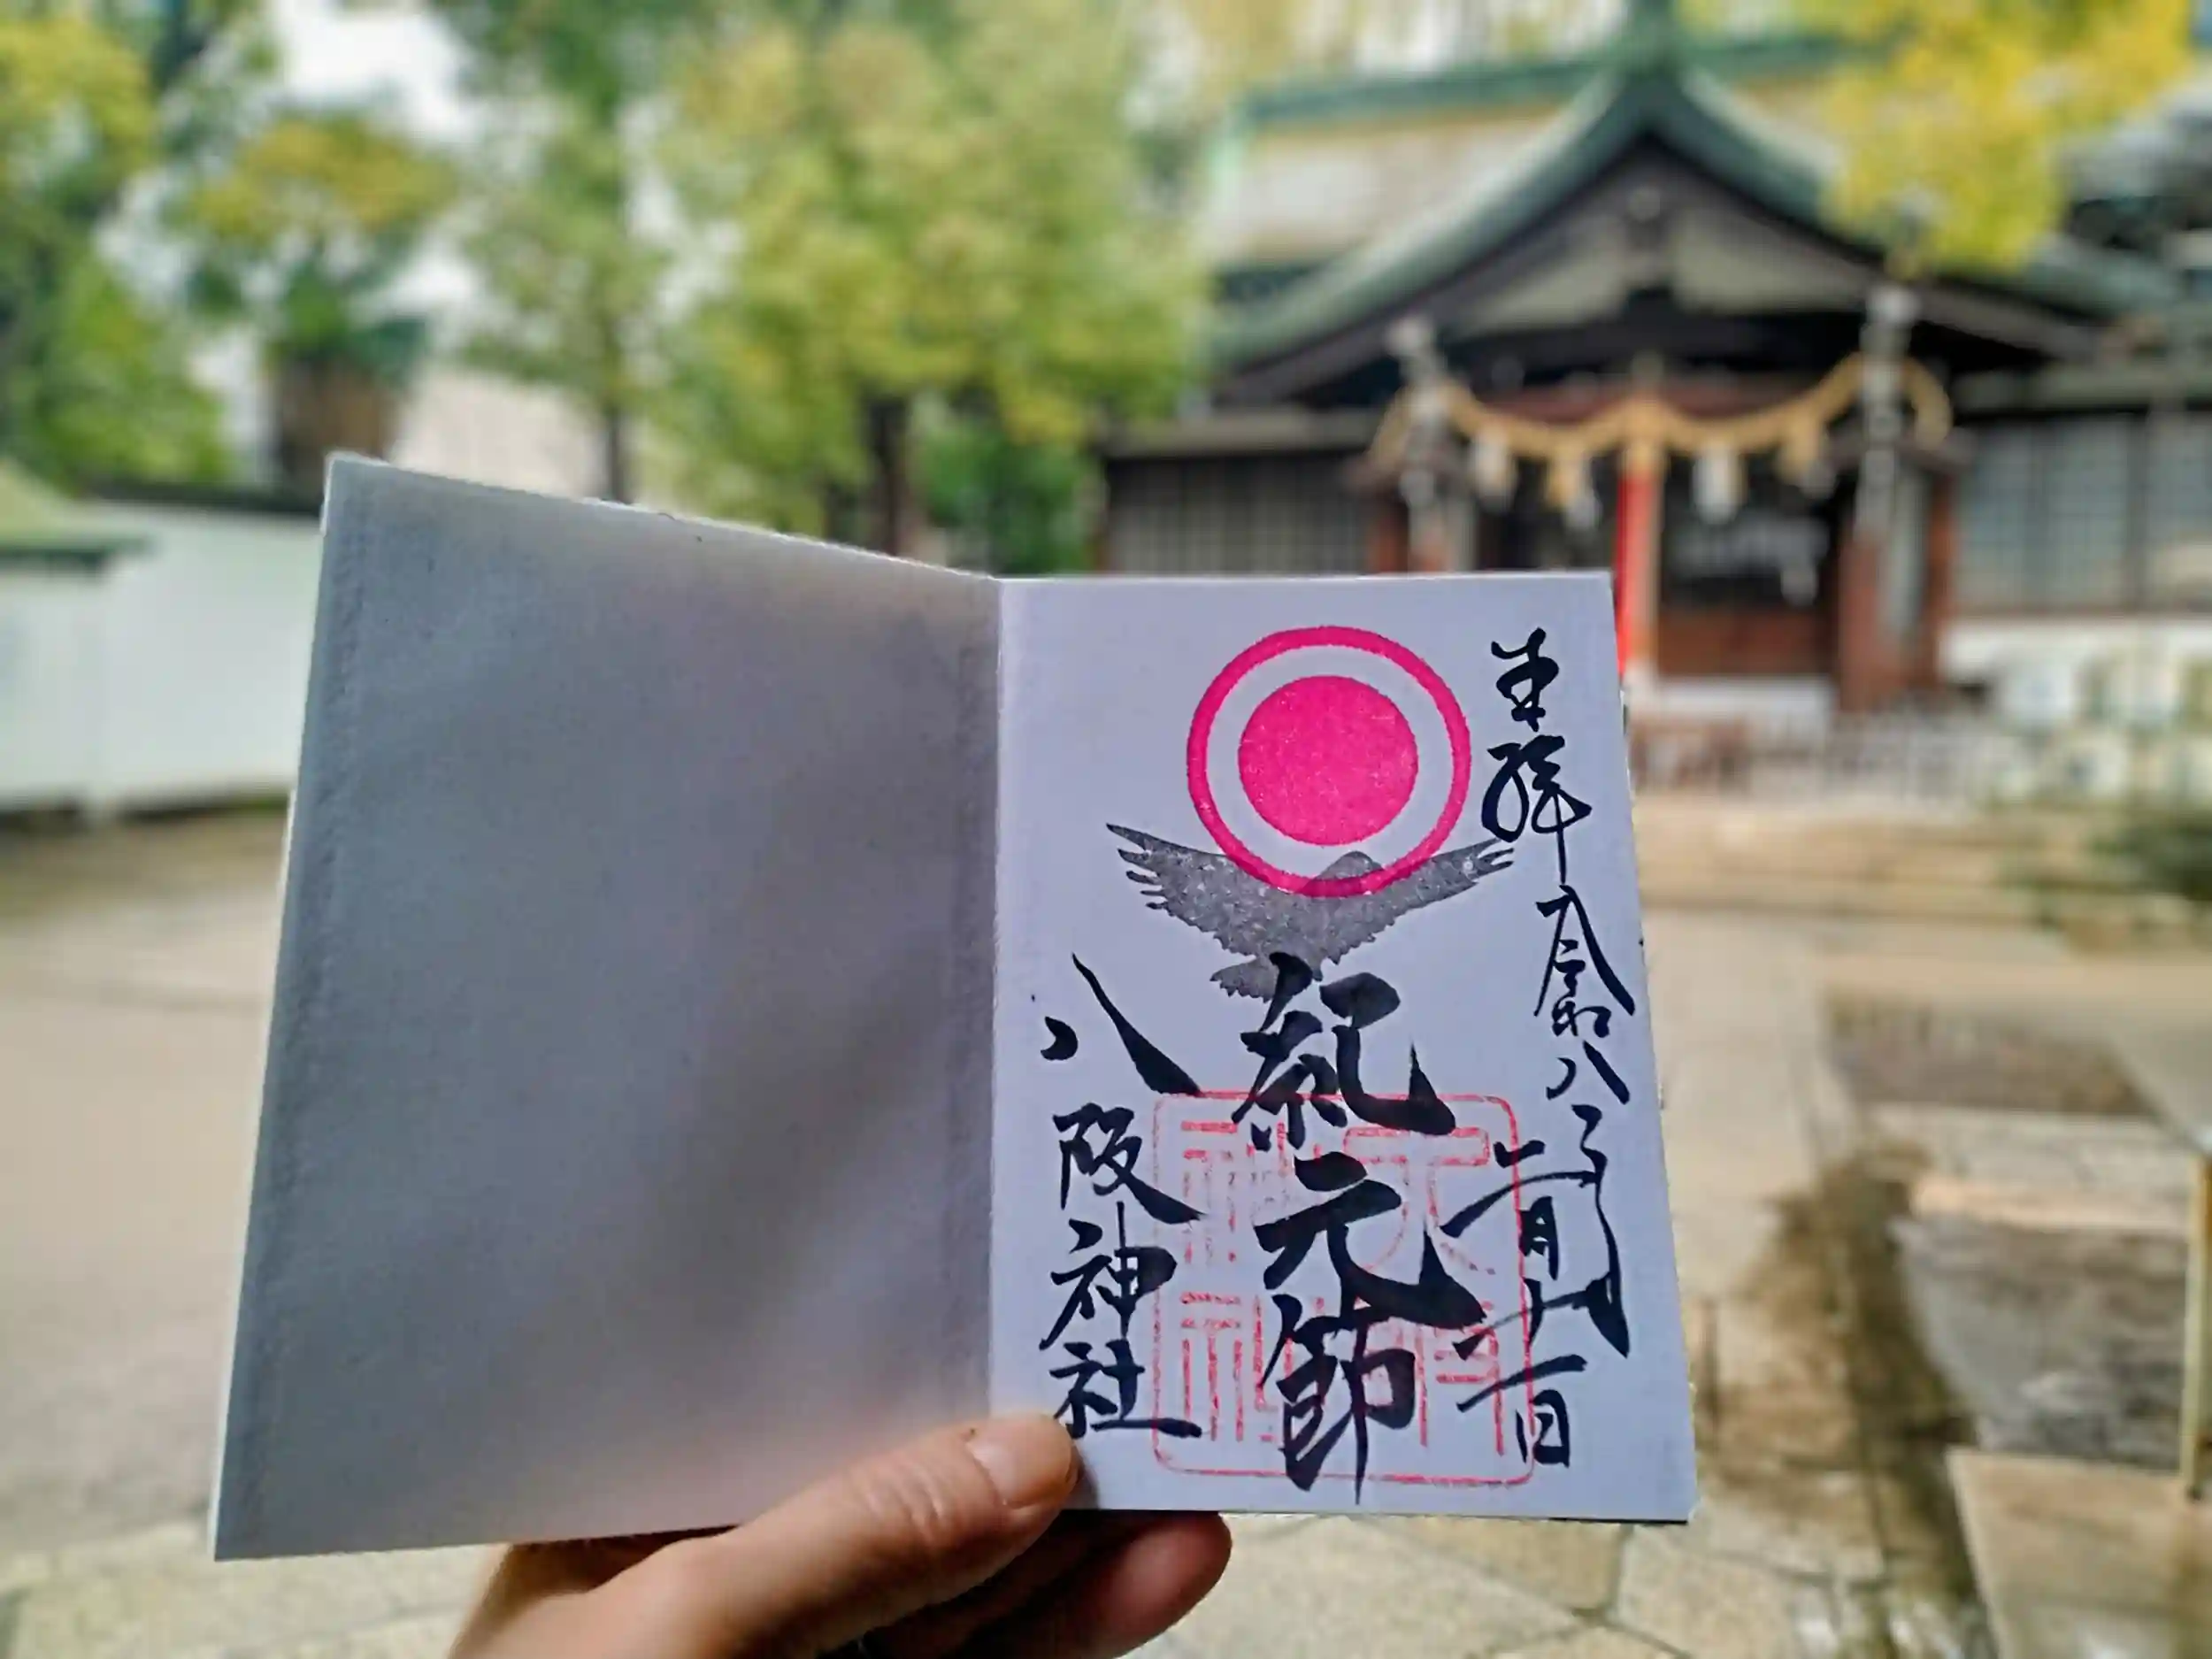 奉拝 令和八年
二月十一日
紀元節
八阪神社